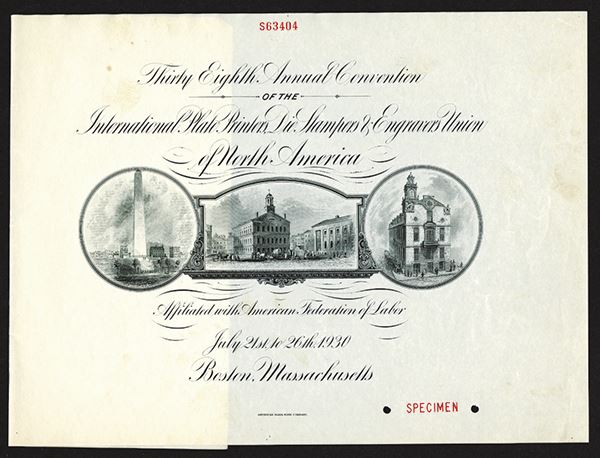 S63404
Thirty Eighth Annual Convention
OF THE
International Plate Printers, Die Stampers & Engravers Union
of North America
Affiliated with American Federation of Labor
July 21st, to 26th, 1930
Boston, Massachusetts
AMERICAN BANK NOTE COMPANY.
SPECIMEN